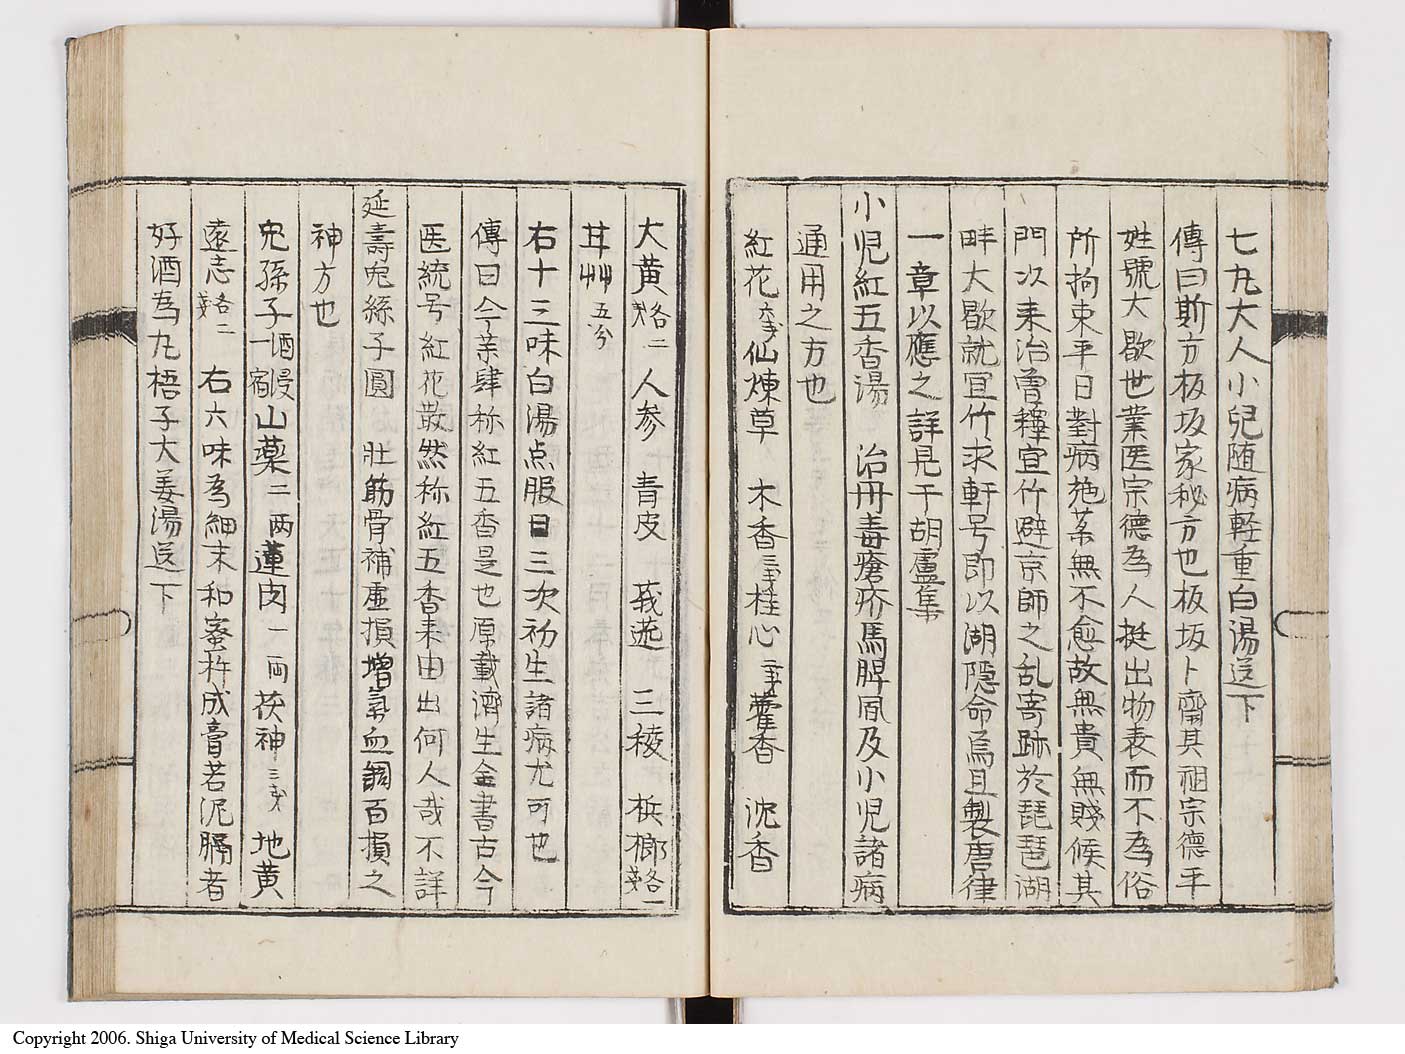 七九大人小兒随病軽重白湯送下
傳曰斯方板坂家秘方也板坂卜齋其祖宗德平
姓號大歇世業医宗德為人挺出物表而不為俗
所拘束平日對病施薬無不愈故無貴無賤候其
門以来治曽釋宜竹避京師之乱寄跡於琵琶湖
畔大歇就宜竹求軒号即以湖隠命焉且製唐律
一章以應之詳見于胡盧集
小児紅五香湯 治丹毒瘡疥馬脾風及小児諸病
通用之方也
紅花 仙煉草 木香三戔桂心二戔藿香 沈香
大黄各二戔 人参 青皮 莪 三稜 梹榔各一戔
甘艸五分
右十三味白湯点服日三次初生諸病尤可也
傳曰今薬肆称紅五香是也原載済生全書古今
医統号紅花散然称紅五香来由出何人哉不詳
延壽兔絲子圓 壮筋骨補虚損増氣血調百損之
神方也
兔孫子酒浸一宿山薬二両蓮肉一両茯神三戔地黄
遠志各二戔 右六味為細末和蜜杵成膏若泥膈者
好酒為丸梧子大姜湯送下
Copyright 2006. Shiga University of Medical Science Library